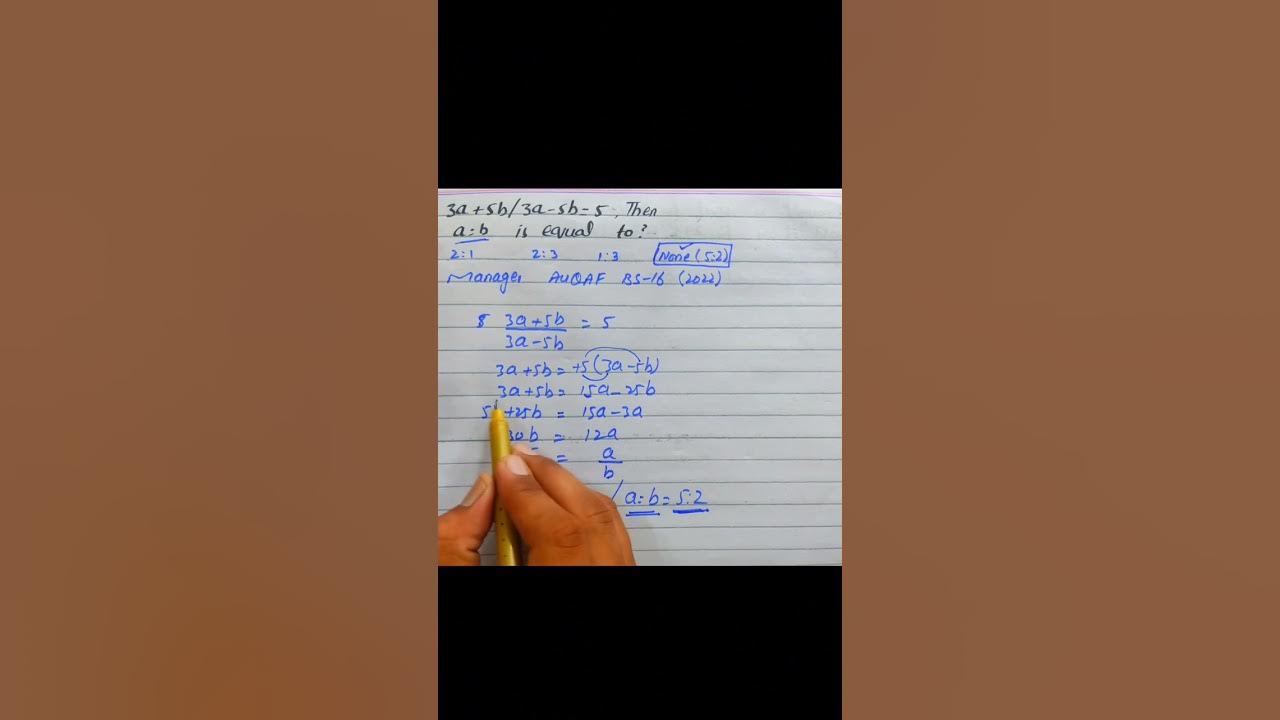 3a+5b/3a-5b=5, Then
a:b is equal to?
2:1 2:3 1:3 None (5:2)
Manager AUQAF BS-16 (2022)
3a+5b = 5
3a-5b
3a+5b = +5(3a-5b)
3a+5b = 15a-25b
+25b = 15a-3a
30b = 12a
= a
b
a:b = 5:2